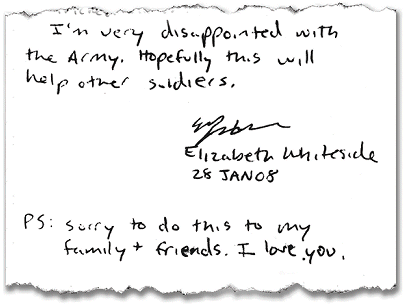 I'm very disappointed with
the Army. Hopefully this will
help other soldiers.
Elizabeth Whiteside
28 JAN08
PS: sorry to do this to my
family + friends. I love you.